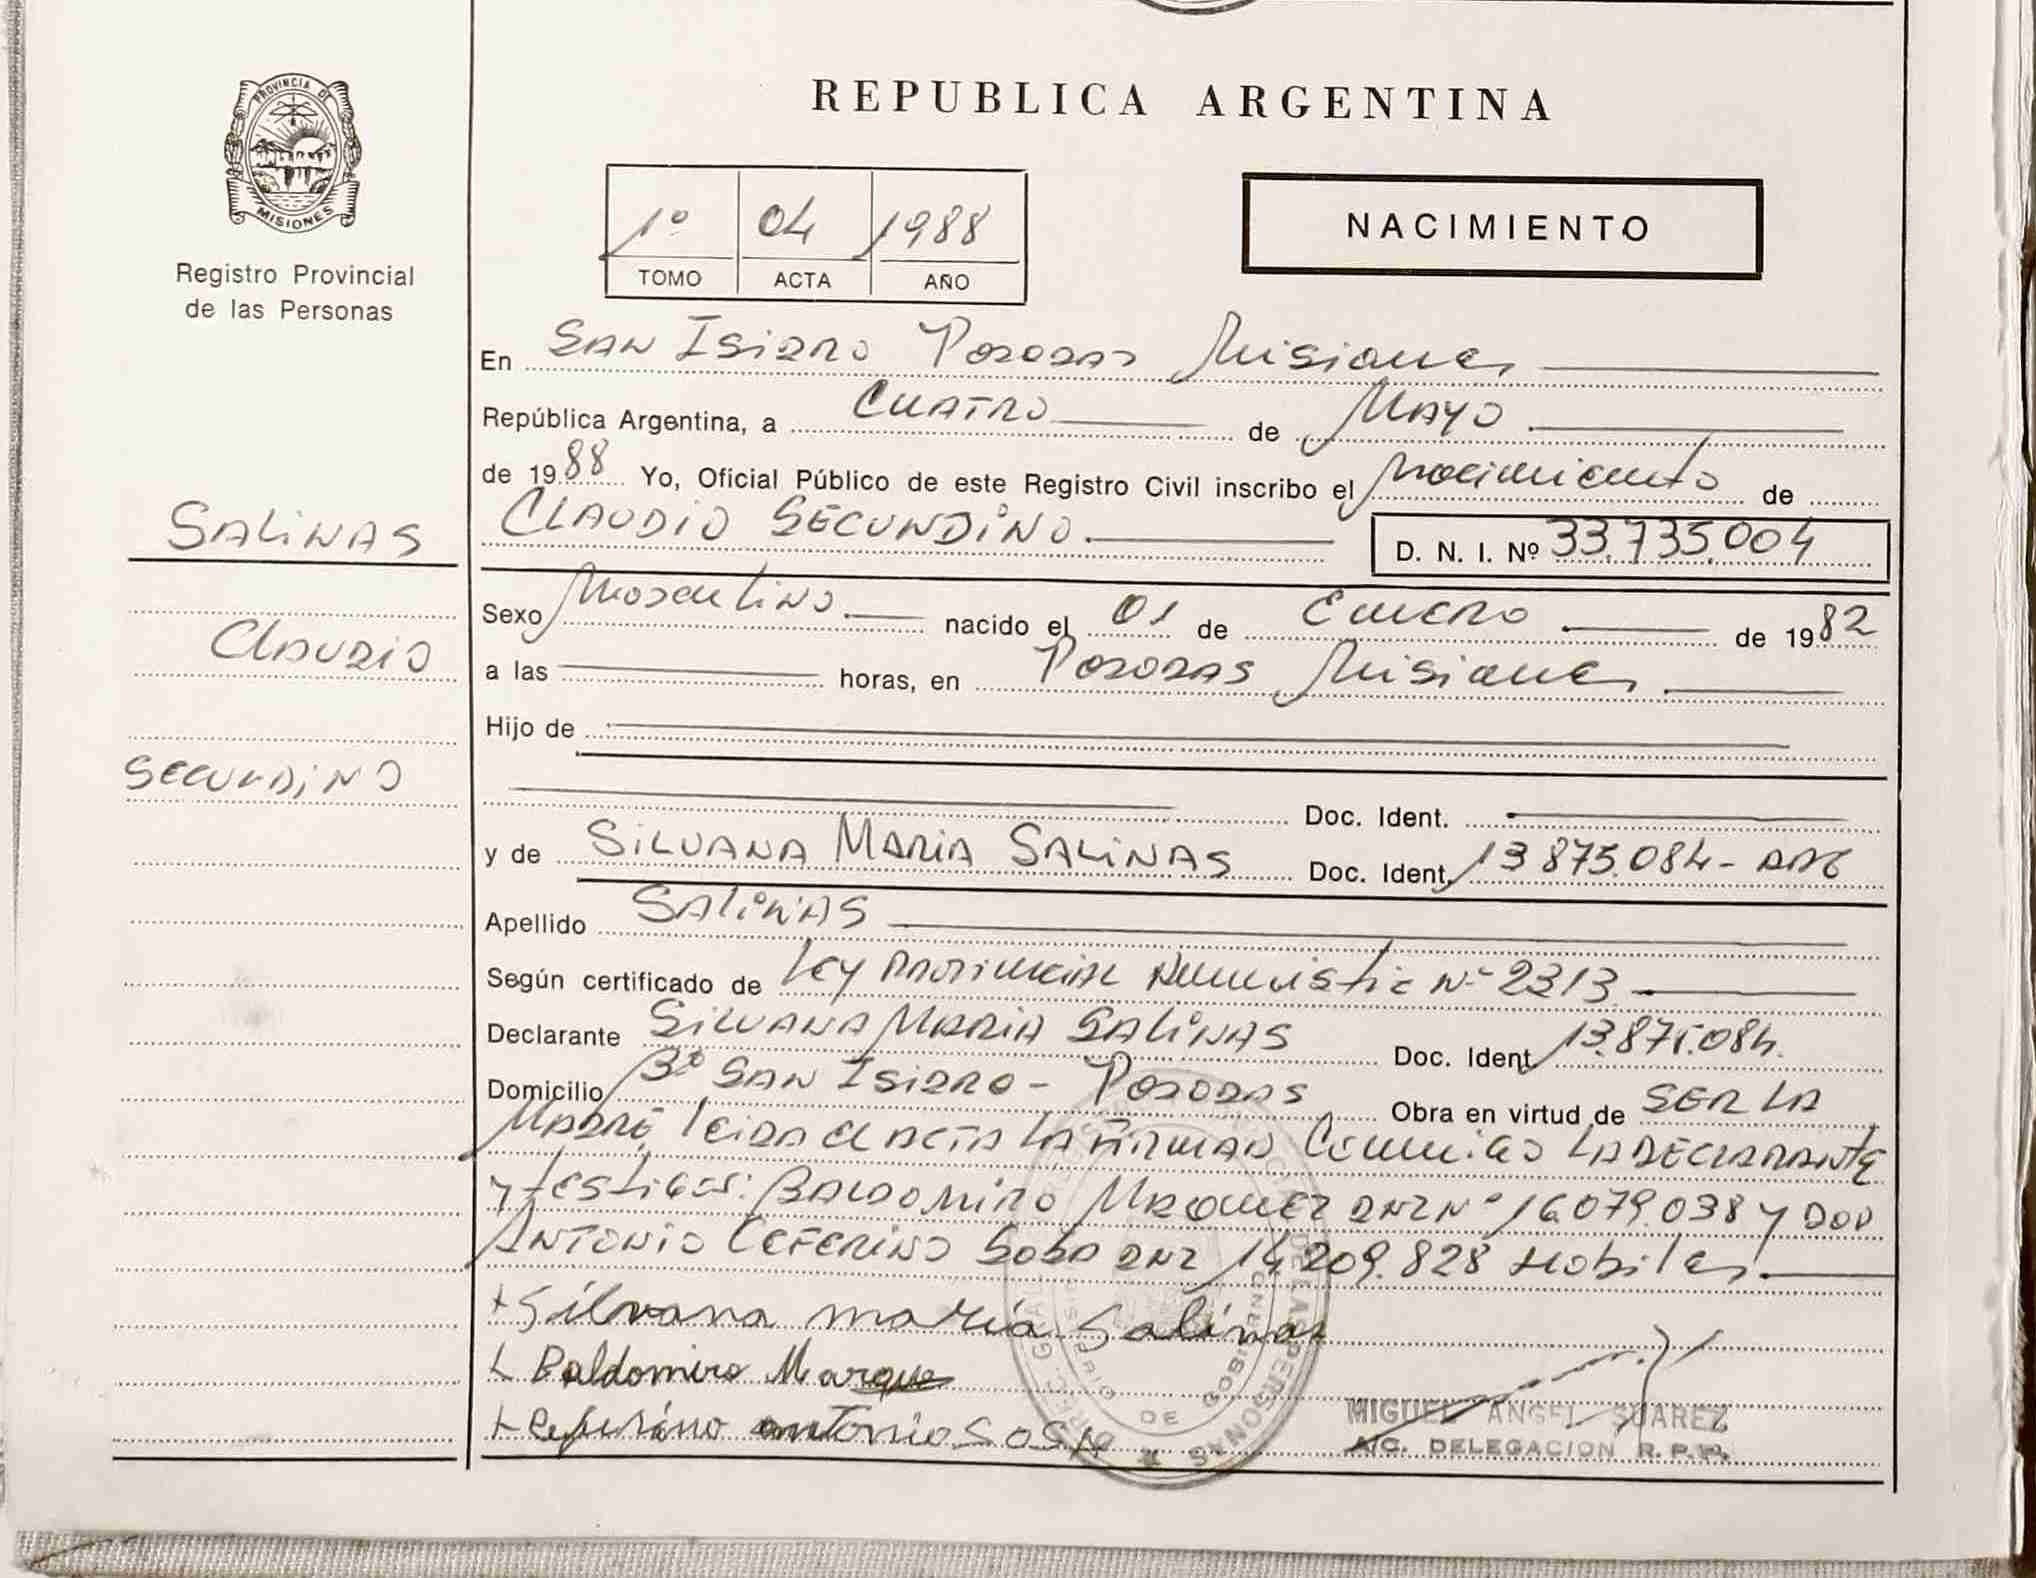 PROVINCIA DE
MISIONES
Registro Provincial
de las Personas
REPUBLICA ARGENTINA
1º 04 1988
TOMO ACTA AÑO
NACIMIENTO
En San Isidro Posadas Misiones
República Argentina, a Cuatro de Mayo
de 1988 Yo, Oficial Público de este Registro Civil inscribo el Nacimiento de
SALINAS
CLAUDIO SECUNDINO D. N. I. Nº 33.735.004
Sexo Masculino nacido el 01 de Enero de 1982
CLAUDIO
a las horas, en Posadas Misiones
Hijo de
SECUNDINO
Doc. Ident.
y de SILVANA MARIA SALINAS Doc. Ident. 13.875.084 -
Apellido SALINAS
Según certificado de Ley Provincial Nº 2313
Declarante SILVANA MARIA SALINAS Doc. Ident. 13.875.084.
Domicilio Bº SAN ISIDRO - POSADAS Obra en virtud de SER LA
MADRE, leida el acta la firman Conmigo LA DECLARANTE
y testigos: BALDOMIRO MARQUEZ DNI Nº 16.079.038 y DON
ANTONIO CEFERINO SOSA DNI 14.209.828 Habiles
+ Silvana maría Salinas
Baldomiro Marque
+ Ceferino antonio SOSA
MIGUEL ANGEL SUAREZ
A/C. DELEGACION R.P.P.